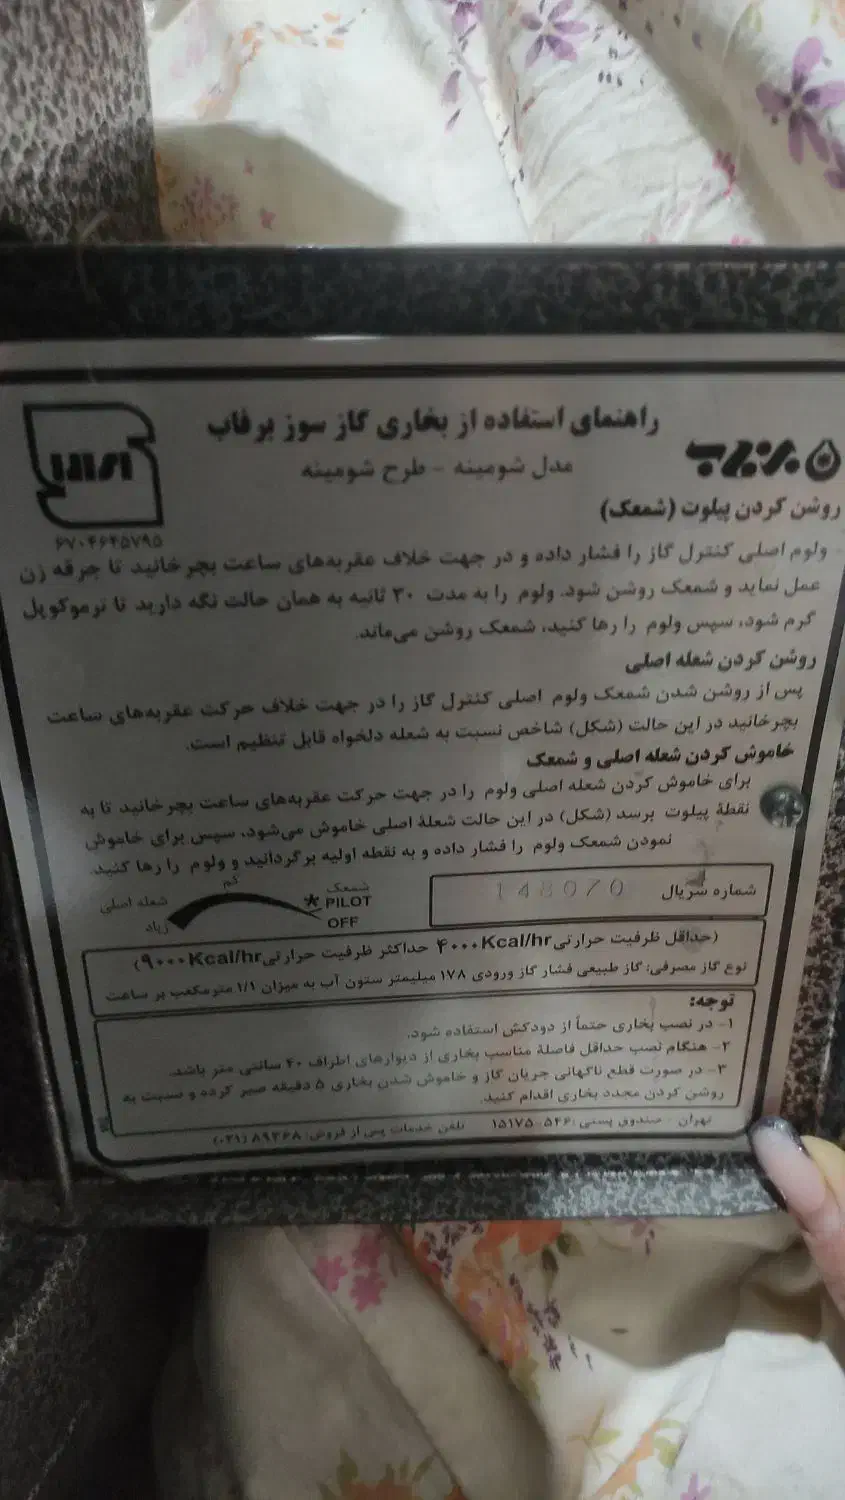 راهنمای استفاده از بخاری گاز سوز برفاب
برفاب
مدل شومینه - طرح شومینه
استاندارد ایران
۶۷۰۴۶۴۵۷۹۵
روشن کردن پیلوت (شمعک)
- ولوم اصلی کنترل گاز را فشار داده و در جهت خلاف عقربه‌های ساعت بچرخانید تا جرقه زن
عمل نماید و شمعک روشن شود. ولوم را به مدت ۳۰ ثانیه به همان حالت نگه دارید تا ترموکوپل
گرم شود، سپس ولوم را رها کنید، شمعک روشن می‌ماند.
روشن کردن شعله اصلی
پس از روشن شدن شمعک ولوم اصلی کنترل گاز را در جهت خلاف حرکت عقربه‌های ساعت
بچرخانید در این حالت (شکل) شاخص نسبت به شعله دلخواه قابل تنظیم است.
خاموش کردن شعله اصلی و شمعک
برای خاموش کردن شعله اصلی ولوم را در جهت حرکت عقربه‌های ساعت بچرخانید تا به
نقطهٔ پیلوت برسد (شکل) در این حالت شعلهٔ اصلی خاموش می‌شود، سپس برای خاموش
نمودن شمعک ولوم را فشار داده و به نقطه اولیه برگردانید و ولوم را رها کنید.
شماره سریال 148070
شمعک
PILOT
OFF
کم
شعله اصلی
زیاد
(حداقل ظرفیت حرارتی ۴۰۰۰Kcal/hr حداکثر ظرفیت حرارتی ۹۰۰۰Kcal/hr)
نوع گاز مصرفی: گاز طبیعی فشار گاز ورودی ۱۷۸ میلیمتر ستون آب به میزان ۱/۱ مترمکعب بر ساعت
توجه:
۱- در نصب بخاری حتماً از دودکش استفاده شود.
۲- هنگام نصب حداقل فاصلهٔ مناسب بخاری از دیوارهای اطراف ۴۰ سانتی متر باشد.
۳- در صورت قطع ناگهانی جریان گاز و خاموش شدن بخاری ۵ دقیقه صبر کرده و نسبت به
روشن کردن مجدد بخاری اقدام کنید.
تهران - صندوق پستی: ۵۴۶-۱۵۱۷۵ تلفن خدمات پس از فروش: ۸۹۳۶۸ (۰۲۱)